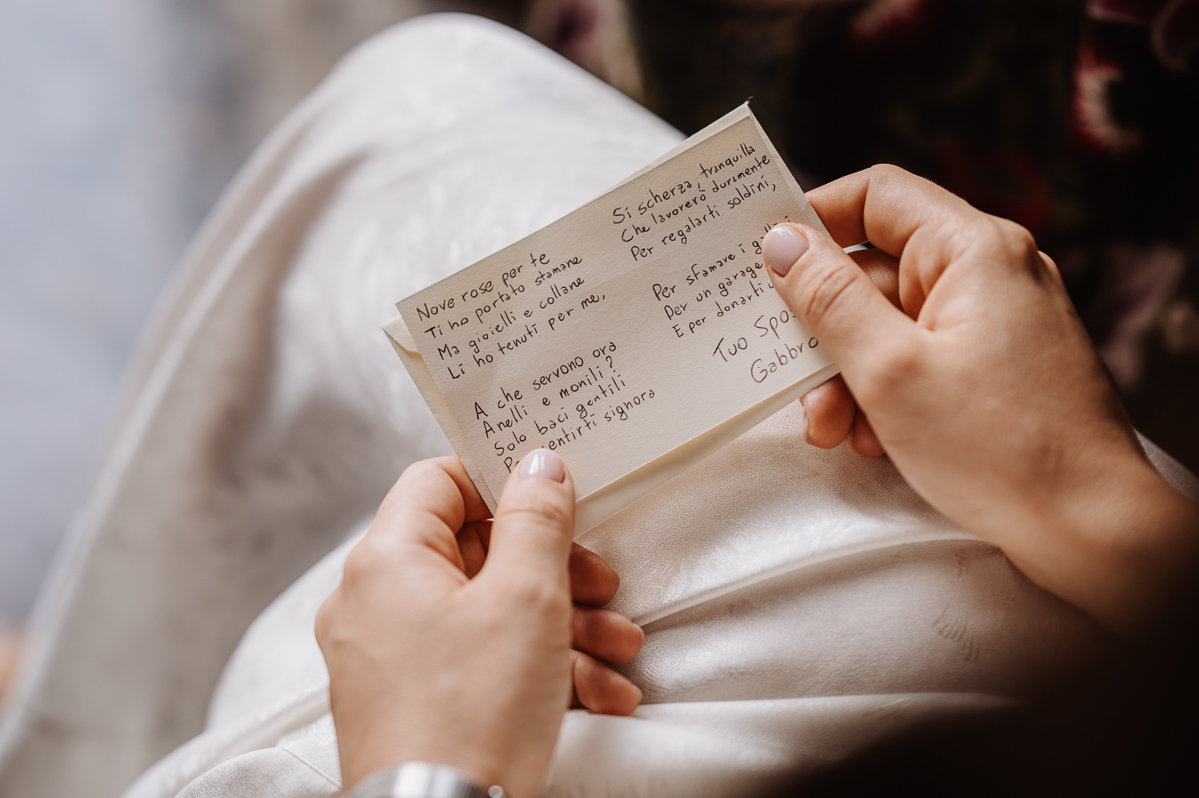 Nove rose per te
Ti ho portato stamane
Ma gioielli e collane
Li ho tenuti per me,
A che servono ora
Anelli e monili?
Solo baci gentili
sentirti signora
Si scherza, tranquilla
Che lavorerò duramente
Per regalarti soldini,
Per sfamare i
Per un garage
E per donarti
Tuo